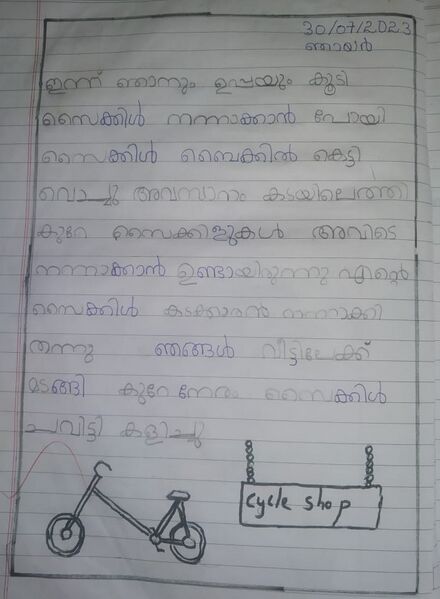 30/07/2023
ഞായർ
ഇന്ന് ഞാനും ഉപ്പയും കൂടി
സൈക്കിൾ നന്നാക്കാൻ പോയി
സൈക്കിൾ ബൈക്കിൽ കെട്ടി
വെച്ചു അവസാനം കടയിലെത്തി
കുറേ സൈക്കിളുകൾ അവിടെ
നന്നാക്കാൻ ഉണ്ടായിരുന്നു എൻ്റെ
സൈക്കിൾ കടക്കാരൻ നന്നാക്കി
തന്നു ഞങ്ങൾ വീട്ടിലേക്ക്
മടങ്ങി കുറേ നേരം സൈക്കിൾ
ചവിട്ടി കളിച്ചു
cycle shop